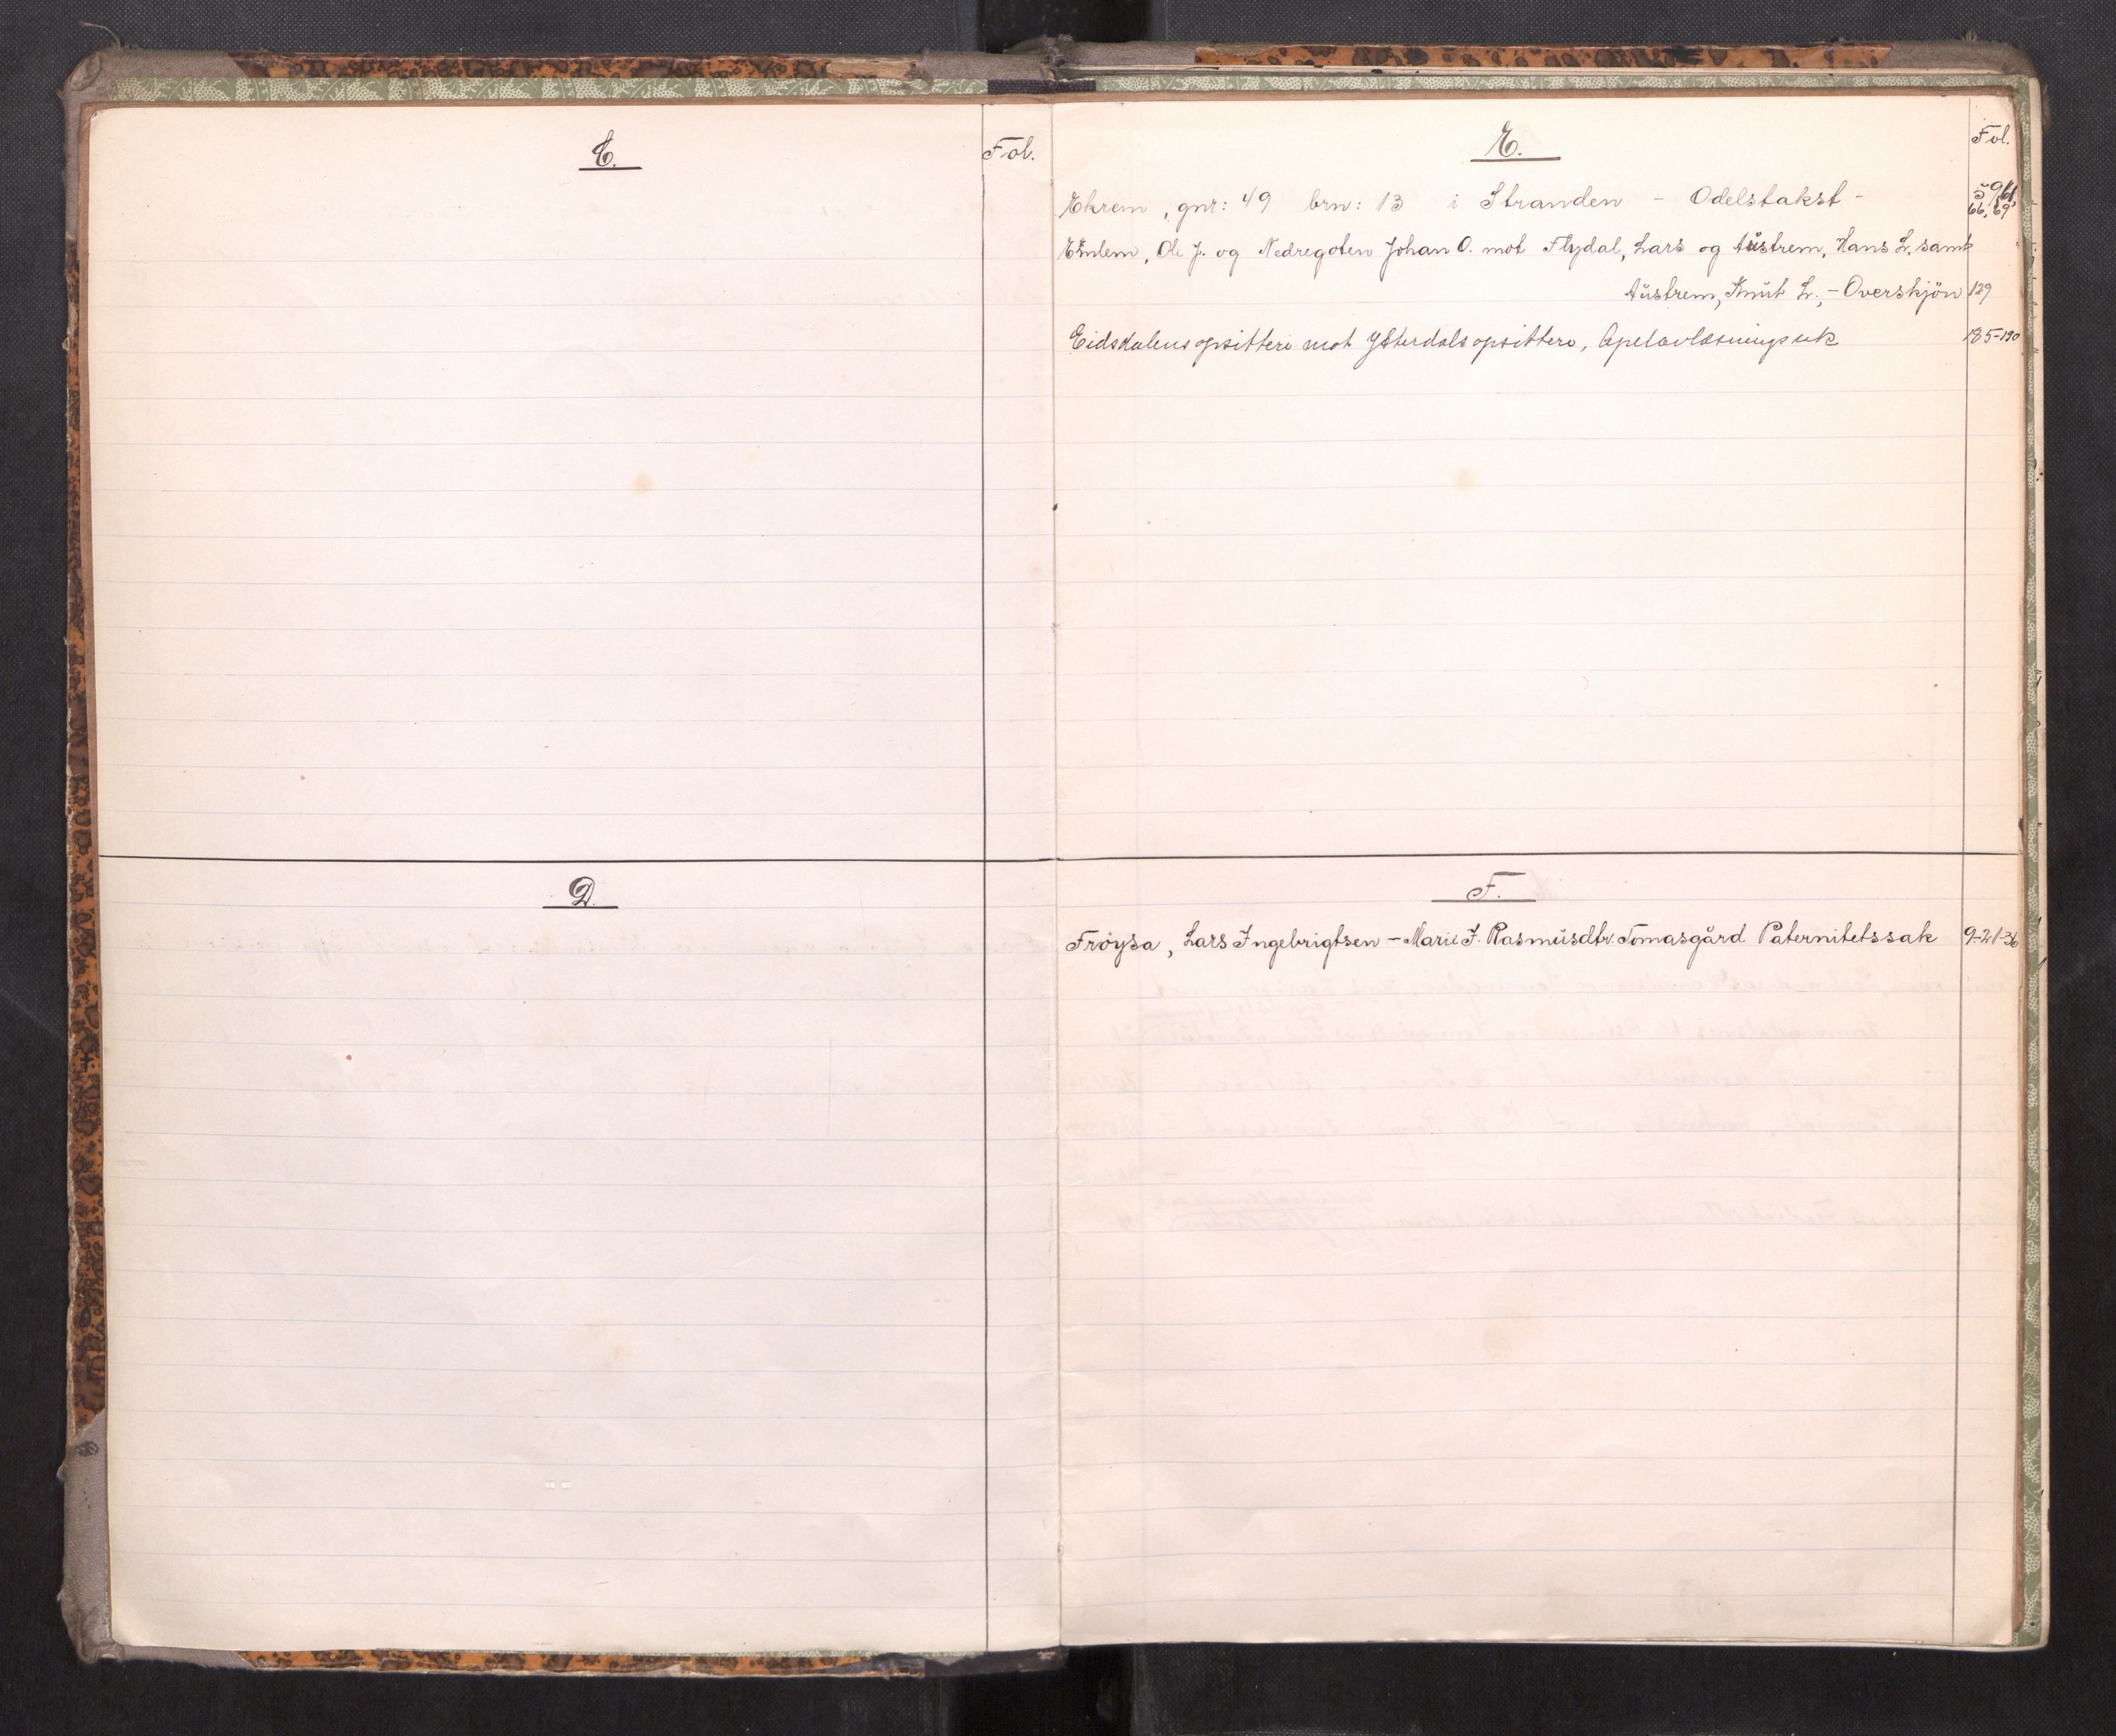 C.
Fol.
D.
E.
Fol.
Ekrem, gnr: 49 brn: 13 i Stranden - Odelstakst - 59, 61, 66, 69
Emlem, Ole J. og Nedregoten Johan O. mot Flydal, Lars og Austrem, Hans L. samt
Austrem, Knut L., - Overskjön 129
Eidsdalens opsittere mot Ytterdals opsittere, 185-190
F.
Frøysa, Lars Ingebrigtsen - Marie J. Rasmusdtr. Tomasgård Paternitetssak 9-21-36